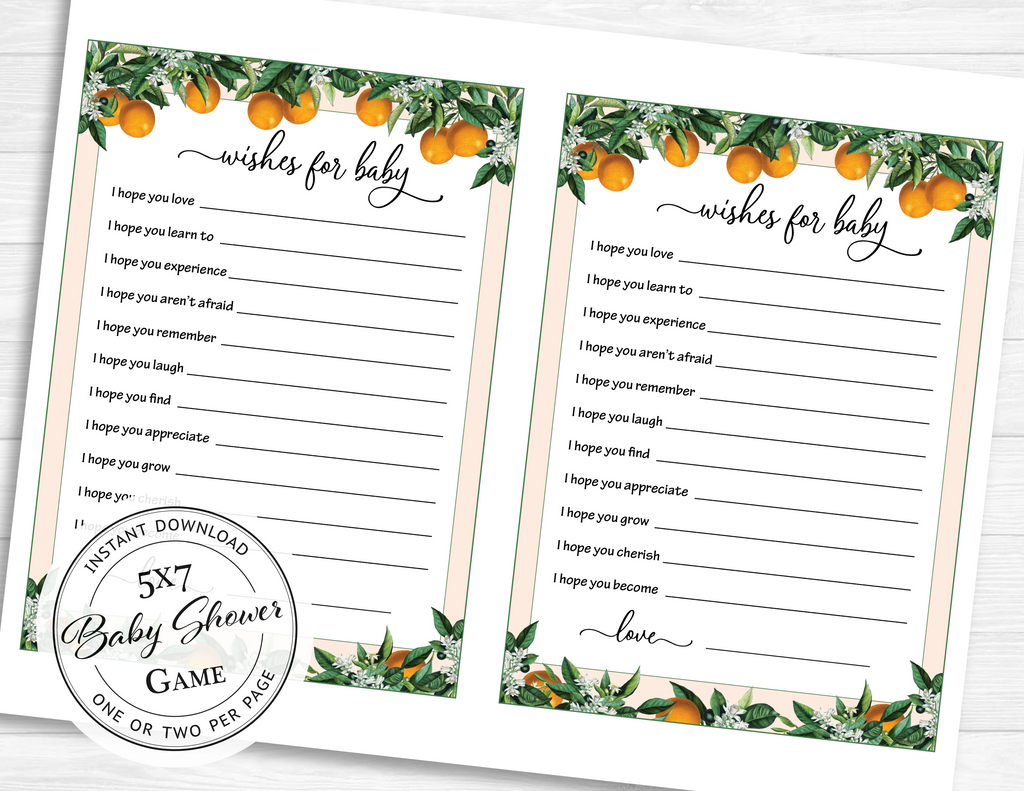 wishes for baby
I hope you love
I hope you learn to
I hope you experience
I hope you aren't afraid
I hope you remember
I hope you laugh
I hope you find
I hope you appreciate
I hope you grow
I hope you cherish
I hope become
love
wishes for baby
I hope you love
I hope you learn to
I hope you experience
I hope you aren't afraid
I hope you remember
I hope you laugh
I hope you find
I hope you appreciate
I hope you grow
I hope you cherish
I hope you become
love
INSTANT DOWNLOAD
5X7
Baby Shower
GAME
ONE OR TWO PER PAGE